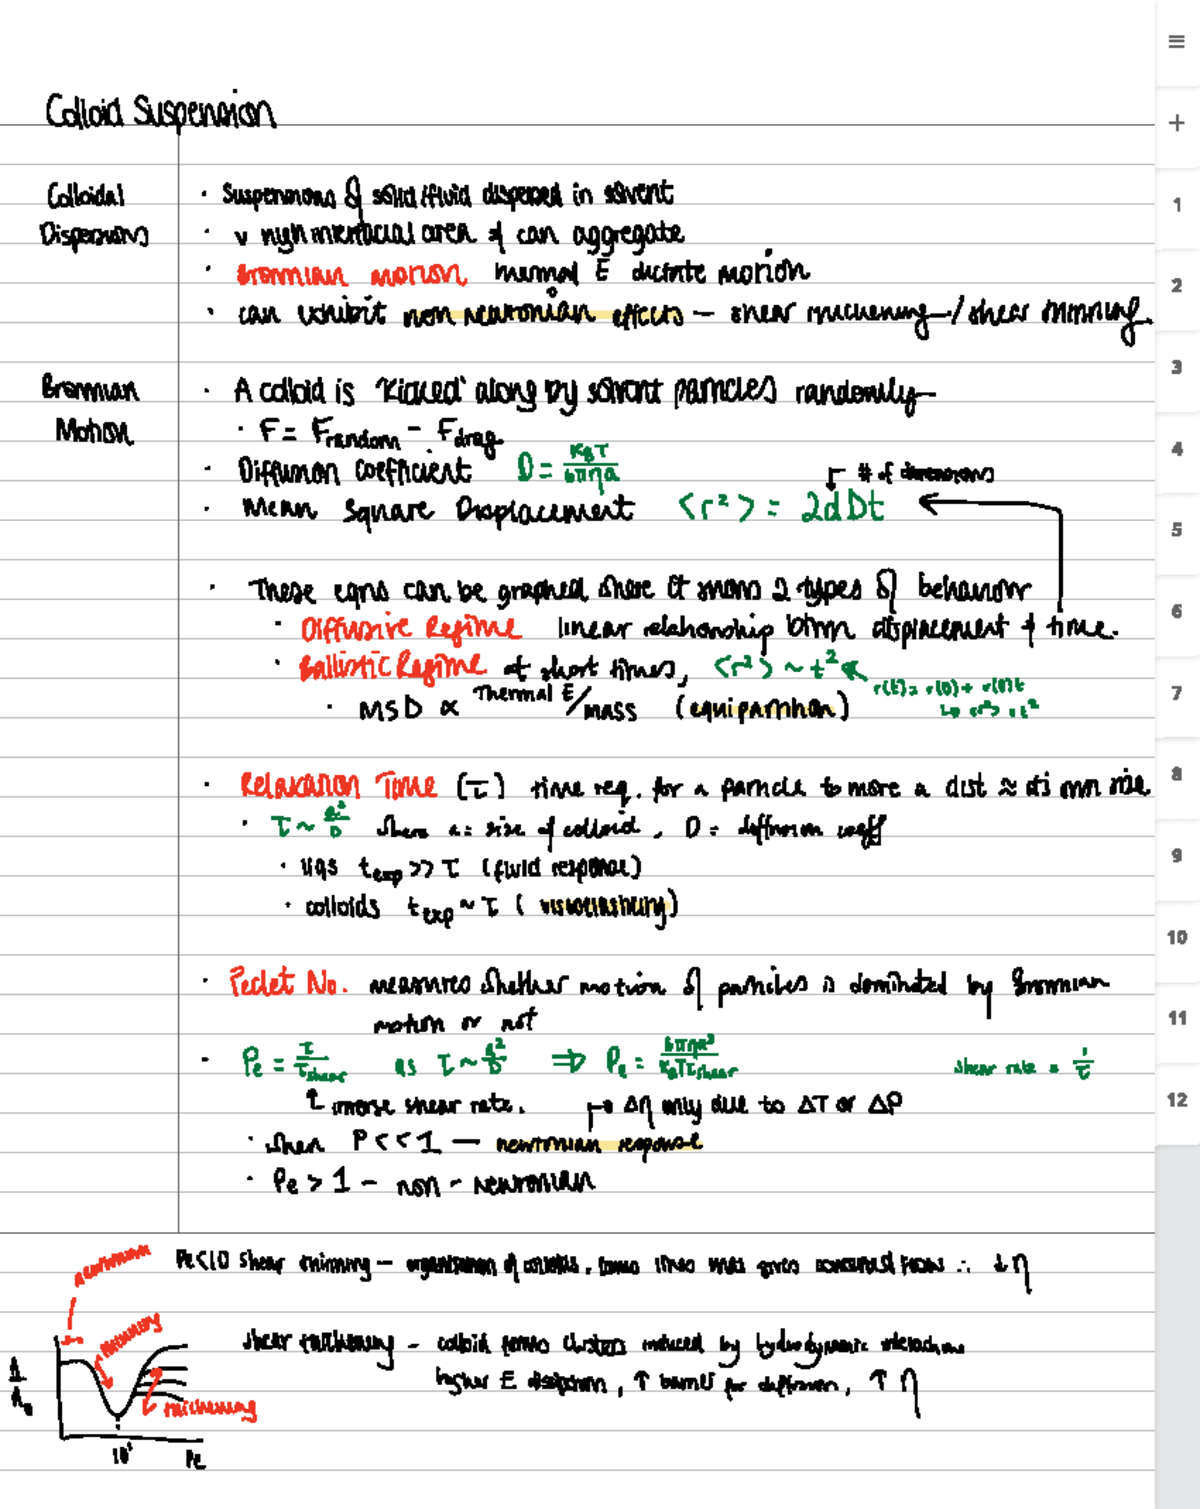 Colloid Suspension
Colloidal Dispersions
· Suspensions of solid/fluid dispersed in solvent
· v high interfacial area & can aggregate
· Brownian motion thermal E dictate motion
· can exhibit non newtonian effects – shear thickening / shear thinning.
Brownian Motion
· A colloid is 'kicked' along by solvent particles randomly
· F = Frandom - Fdrag
· Diffusion coefficient D = KBT / 6πηa
# of dimensions
· Mean Square Displacement <r²> = 2dDt
· These eqns can be graphed where it shows 2 types of behaviour
· Diffusive Regime linear relationship btwn displacement & time.
· Ballistic Regime at short times, <r²> ~ t²
r(t) = r(0) + v(0)t
↳ <r²> ∝ t²
· MSD ∝ Thermal E / mass (equiparthan)
· Relaxation Time (τ) time req. for a particle to move a dist ≈ its own size
· τ ~ a²/D where a = size of colloid, D = diffusion coeff
· liqs texp >> τ (fluid response)
· colloids texp ~ τ (viscoelasticity)
· Peclet No. measures whether motion of particles is dominated by Brownian
motion or not
· Pe = τ / τshear as τ ~ a²/D ⇒ Pe = 6πηa³ / KBTτshear shear rate = 1/τ
↑ inverse shear rate. → Δη only due to ΔT or ΔP
· when P << 1 – newtonian response
· Pe > 1 – non - newtonian
newtonian
Pe<10 shear thinning – organisation of colloids, forms lines that gives flow ∴ ↓η
thinning
shear thickening – colloid forms clusters induced by hydrodynamic interactions
higher E dissipation, ↑ barrier for diffusion, ↑ η
thickening
10¹
Pe
≡
+
1
2
3
4
5
6
7
8
9
10
11
12